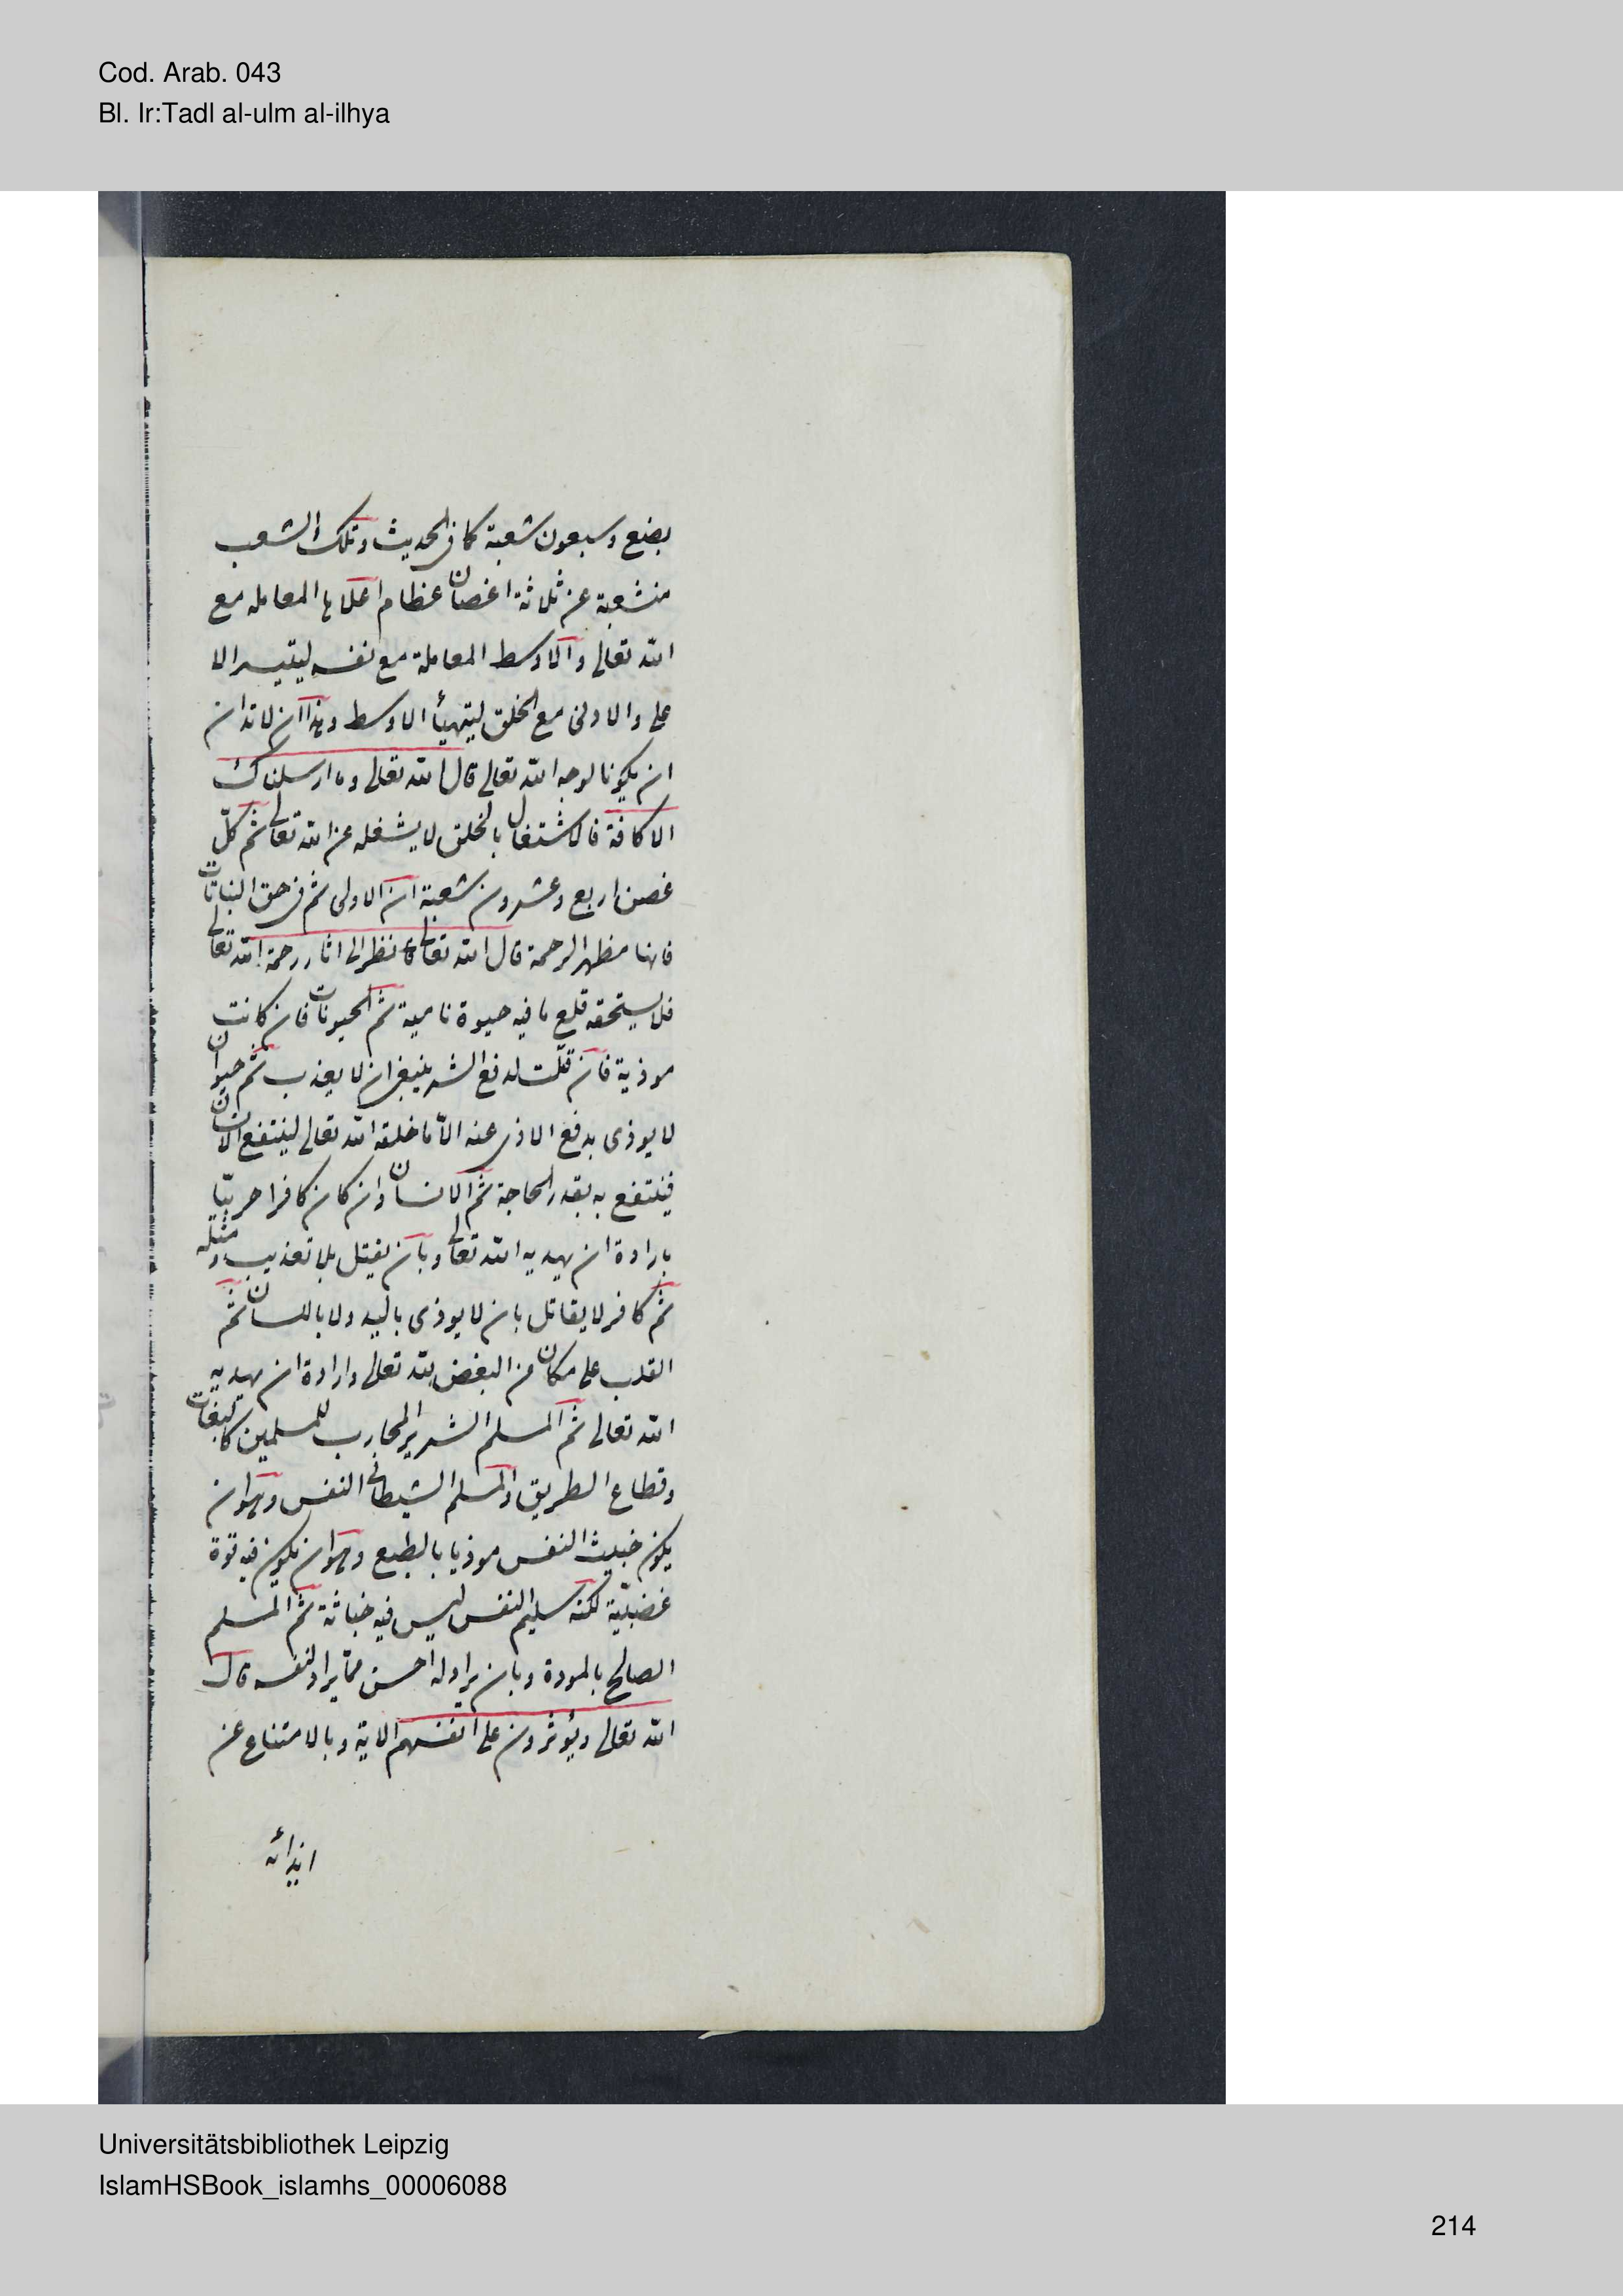 Cod. Arab. 043
Bl. Ir:Tadl al-ulm al-ilhya
بضع وسبعون شعبة كما فى الحديث وتلك الشعب
منشعبة عن ثلاثة اغصان عظام اعلاها المعامله مع
الله تعالى والاوسط المعاملة مع نفسه ليتيسر الا
على والادنى مع الخلق ليتهيأ الاوسط وهذا ان لابد ان
ان يكونا لوجه الله تعالى قال الله تعالى وما ارسلناك
الا كافة فالاشتغال بالخلق لا يشغله عن الله تعالى ثم كلّ
غصن اربع وعشرون شعبة ان الاولى ثم فى حق النباتات
فانها مظهر الرحمة قال الله تعالى فانظر الى اثار رحمة الله تعالى
فلا يستحقه قلع ما فيه حيوة نامية ثم الحيونات فان كانت
موذية فان قتلت لدفع الشر ينبغى ان لا يعذب ثم حيوان
لا يوذى بدفع الاذى عنه الّا ما خلقه الله تعالى لينتفع الانسان
فينتفع به بقدر الحاجة ثم الانسان وان كان كافرا حربيّا
بارادة ان يهديه الله تعالى وبان يقتل بلا تعذيب ومثله
ثم كافر لا يقاتل بان لا يوذى باليد ولا باللسان ثم
القلب على مكان من البغض لله تعالى وارادة ان يهديه
الله تعالى ثم المسلم الشرير المحارب للمسلمين كالبغات
وقطاع الطريق والمسلم الشيطانى النفس وهو ان
يكون خبيث النفس موذيا بالطبع وهو ان يكون فيه قوة
غضبيّة لكنه سليم النفس ليس فيه خباثة ثم المسلم
الصالح بالمودة وبان يراد له احسن ممّا يراد لنفسه قال
الله تعالى ويؤثرون على انفسهم الاية وبالامتناع عن
ايذائه
Universitätsbibliothek Leipzig
IslamHSBook_islamhs_00006088
214